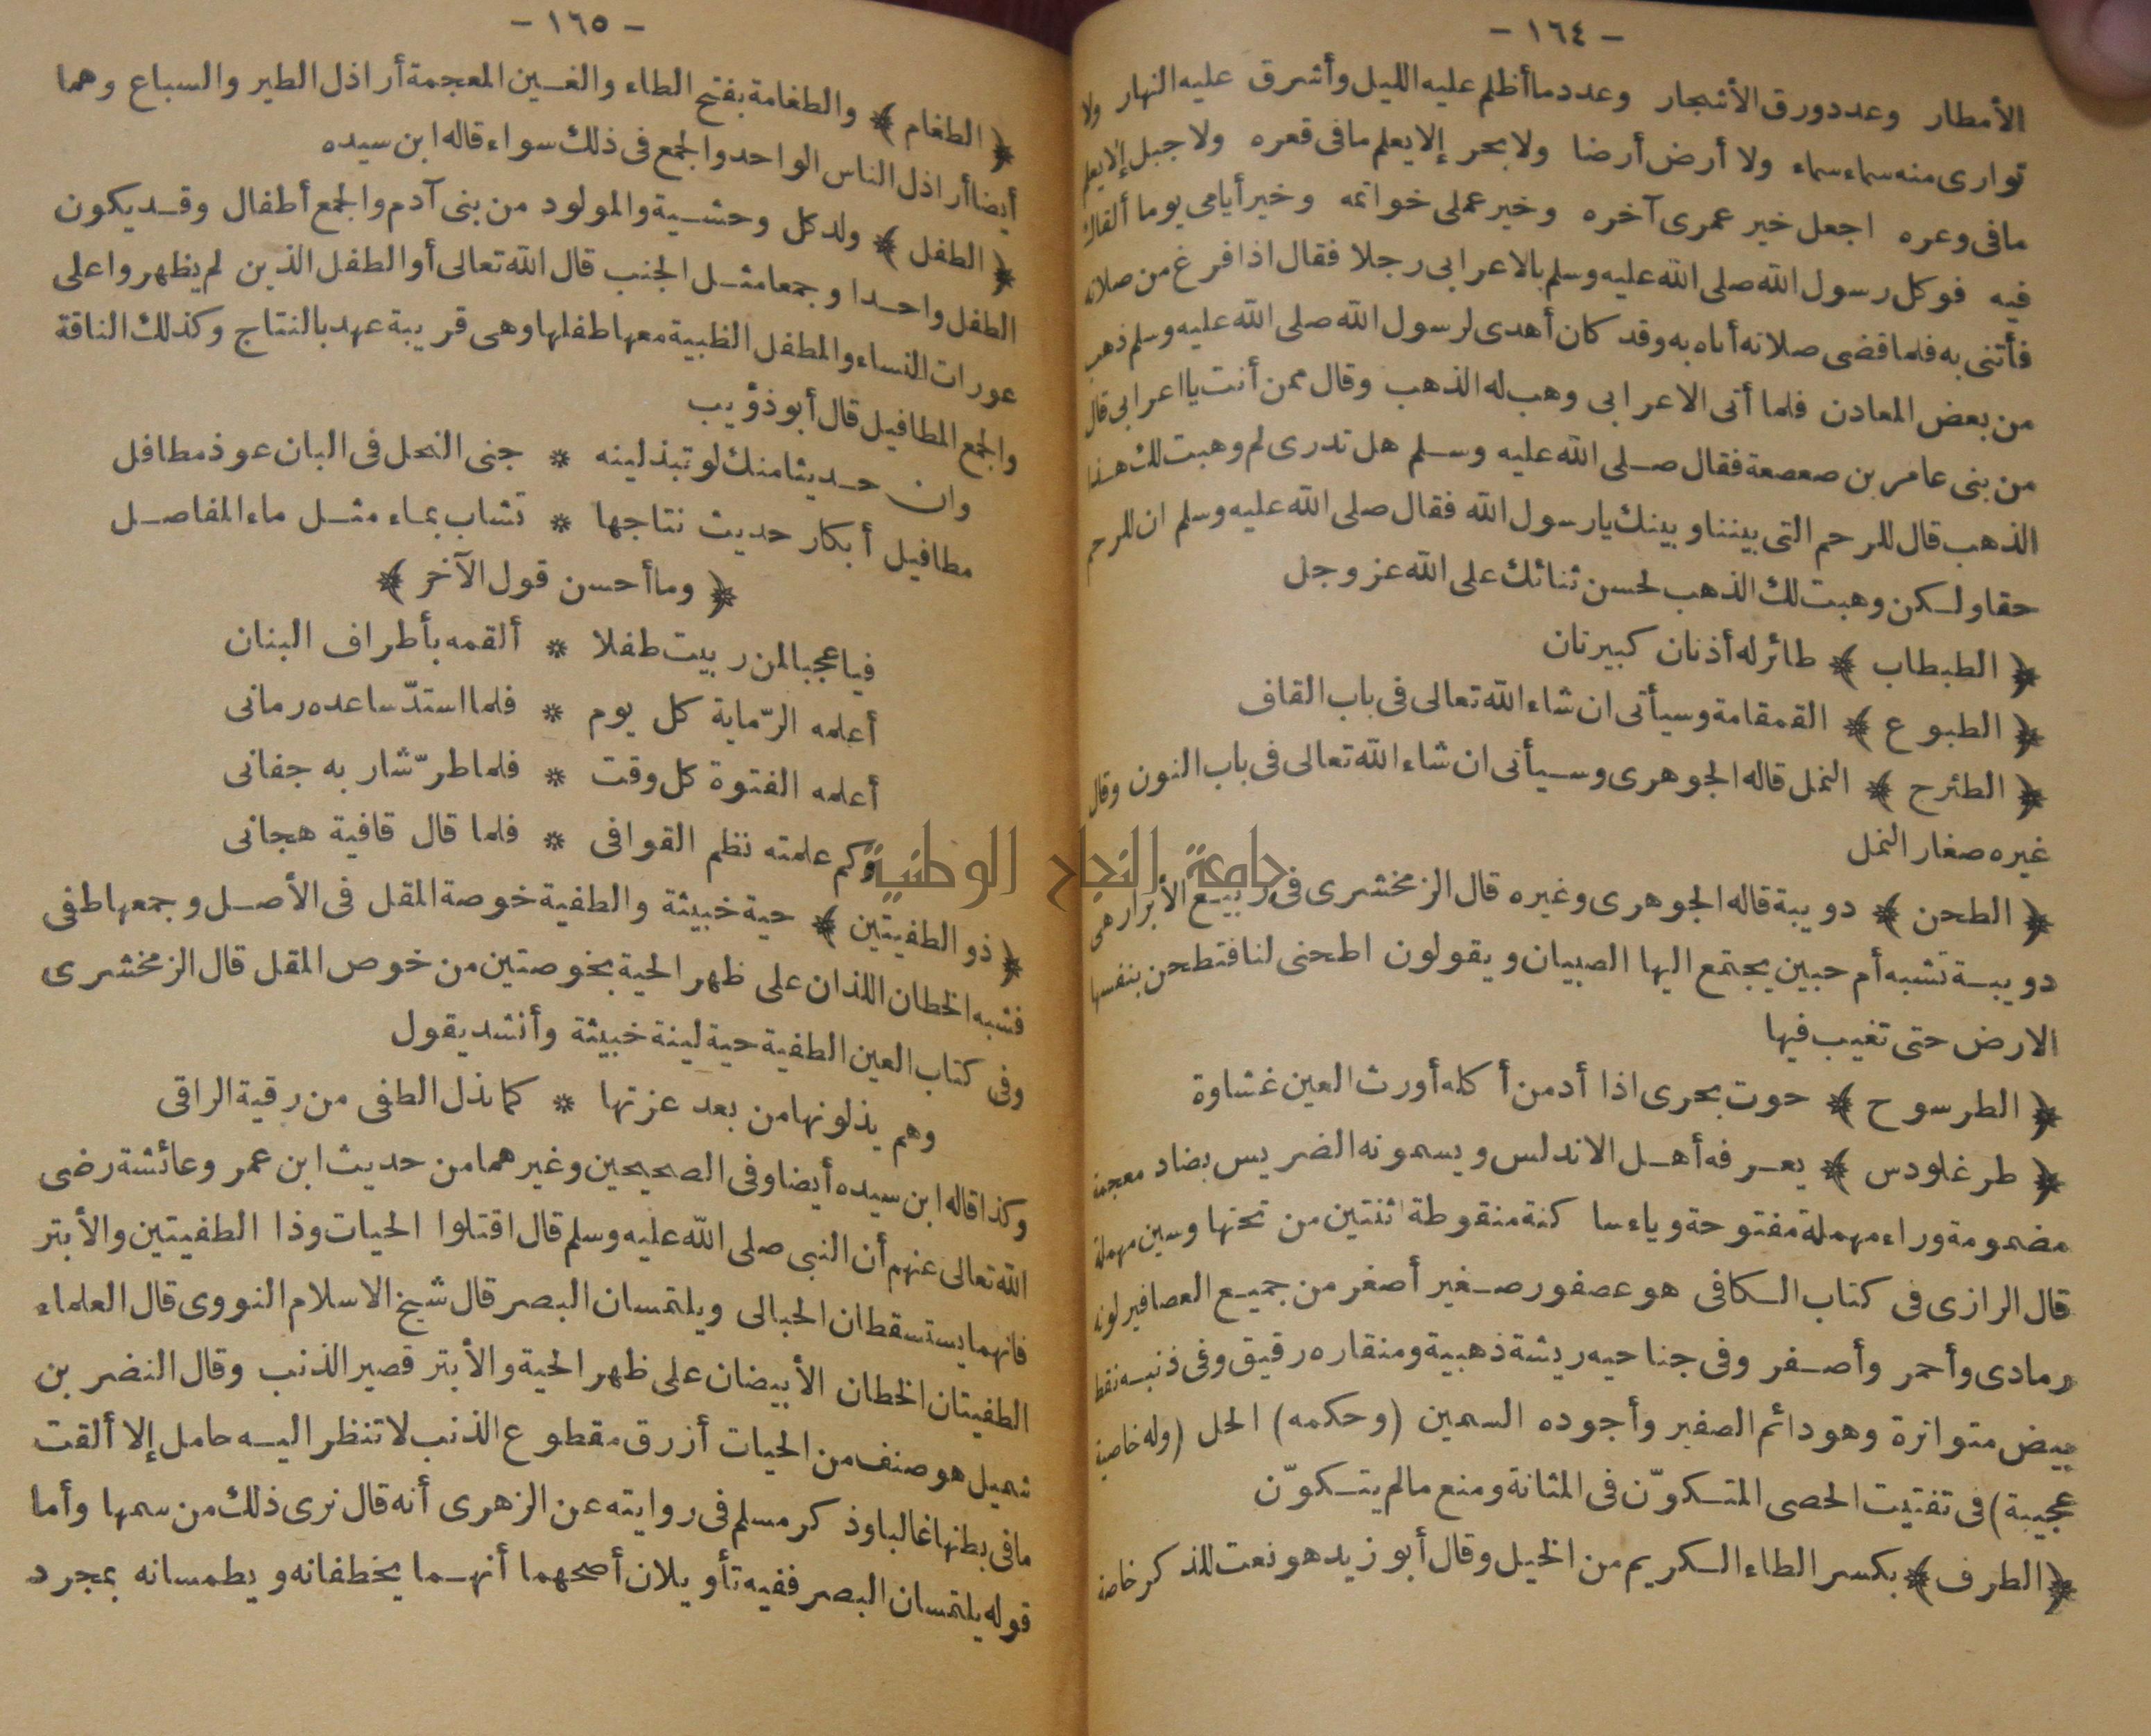 - ١٦٤ -
الأمطار وعدد ورق الأشجار وعدد ما أظلم عليه الليل وأشرق عليه النهار ولا
توارى منه سماء سماء ولا أرض أرضا ولا بحر إلا يعلم ما فى قعره ولا جبل إلا يعلم
ما فى وعره اجعل خير عمرى آخره وخير عملى خواتمه وخير أيامى يوما ألقاك
فيه فوكل رسول الله صلى الله عليه وسلم بالاعرابى رجلا فقال اذا فرغ من صلاته
فأتنى به فلما قضى صلاته أتاه به وقد كان أهدى لرسول الله صلى الله عليه وسلم ذهب
من بعض المعادن فلما أتى الاعرابى وهب له الذهب وقال ممن أنت يا اعرابى قال
من بنى عامر بن صعصعة فقال صلى الله عليه وسلم هل تدرى لم وهبت لك هذا
الذهب قال للرحم التى بيننا وبينك يا رسول الله فقال صلى الله عليه وسلم ان للرحم
حقا ولكن وهبت لك الذهب لحسن ثنائك على الله عز وجل
﴿ الطبطاب ﴾ طائر له أذنان كبيرتان
﴿ الطبوع ﴾ القمقامة وسيأتى ان شاء الله تعالى فى باب القاف
﴿ الطثرج ﴾ النمل قاله الجوهرى وسيأتى ان شاء الله تعالى فى باب النون وقال
غيره صغار النمل
﴿ الطحن ﴾ دويبة قاله الجوهرى وغيره قال الزمخشرى فى ربيع الأبرار هى
دويبة تشبه أم حبين يجتمع اليها الصبيان ويقولون اطحنى لنا فتطحن بنفسها
الارض حتى تغيب فيها
﴿ الطرسوح ﴾ حوت بحرى اذا أدمن أكله أورث العين غشاوة
﴿ طرغلودس ﴾ يعرفه أهل الاندلس ويسمونه الضريس بضاد معجمة
مضمومة وراء مهملة مفتوحة وياء ساكنة منقوطة اثنتين من تحتها وسين مهملة
قال الرازى فى كتاب الكافى هو عصفور صغير أصغر من جميع العصافير لونه
رمادى وأحمر وأصفر وفى جناحيه ريشة ذهبية ومنقاره رقيق وفى ذنبه نقط
بيض متواترة وهو دائم الصفير وأجوده السمين (وحكمه) الحل (وله خاصية
عجيبة) فى تفتيت الحصى المتكوّن فى المثانة ومنع ما لم يتكوّن
﴿ الطرف ﴾ بكسر الطاء الكريم من الخيل وقال أبو زيد هو نعت للذكر خاصة
- ١٦٥ -
﴿ الطغام ﴾ والطغامة بفتح الطاء والغين المعجمة أراذل الطير والسباع وهما
أيضا أراذل الناس الواحد والجمع فى ذلك سواء قاله ابن سيده
﴿ الطفل ﴾ ولد كل وحشية والمولود من بنى آدم والجمع أطفال وقد يكون
الطفل واحدا وجمعا مثل الجنب قال الله تعالى أو الطفل الذين لم يظهروا على
عورات النساء والمطفل الظبية معها طفلها وهى قريبة عهد بالنتاج وكذلك الناقة
والجمع المطافيل قال أبو ذؤيب
وان حديثا منك لو تبذلينه * جنى النحل فى البان عوذ مطافل
مطافيل أبكار حديث نتاجها * تشاب بماء مثل ماء المفاصل
﴿ وما أحسن قول الآخر ﴾
فيا عجبا لمن ربيت طفلا * ألقمه بأطراف البنان
أعلمه الرّماية كل يوم * فلما استدّ ساعده رمانى
أعلمه الفتوة كل وقت * فلما طرّ شاربه جفانى
وكم علمته نظم القوافى * فلما قال قافية هجانى
﴿ ذو الطفيتين ﴾ حية خبيثة والطفية خوصة المقل فى الأصل وجمعها طفى
فشبه الخطان اللذان على ظهر الحية بخوصتين من خوص المقل قال الزمخشرى
وفى كتاب العين الطفية حية لينة خبيثة وأنشد يقول
وهم يذلونها من بعد عزتها * كما تذل الطفى من رقية الراقى
وكذا قاله ابن سيده أيضا وفى الصحيحين وغيرهما من حديث ابن عمر وعائشة رضى
الله تعالى عنهم أن النبى صلى الله عليه وسلم قال اقتلوا الحيات وذا الطفيتين والأبتر
فانهما يستسقطان الحبالى ويلتمسان البصر قال شيخ الاسلام النووى قال العلماء
الطفيتان الخطان الأبيضان على ظهر الحية والأبتر قصير الذنب وقال النضر بن
شميل هو صنف من الحيات أزرق مقطوع الذنب لا تنظر اليه حامل إلا ألقت
ما فى بطنها غالبا وذكر مسلم فى روايته عن الزهرى أنه قال نرى ذلك من سمها وأما
قوله يلتمسان البصر ففيه تأويلان أصحهما أنهما يخطفانه ويطمسانه بمجرد
جامعة النجاح الوطنية